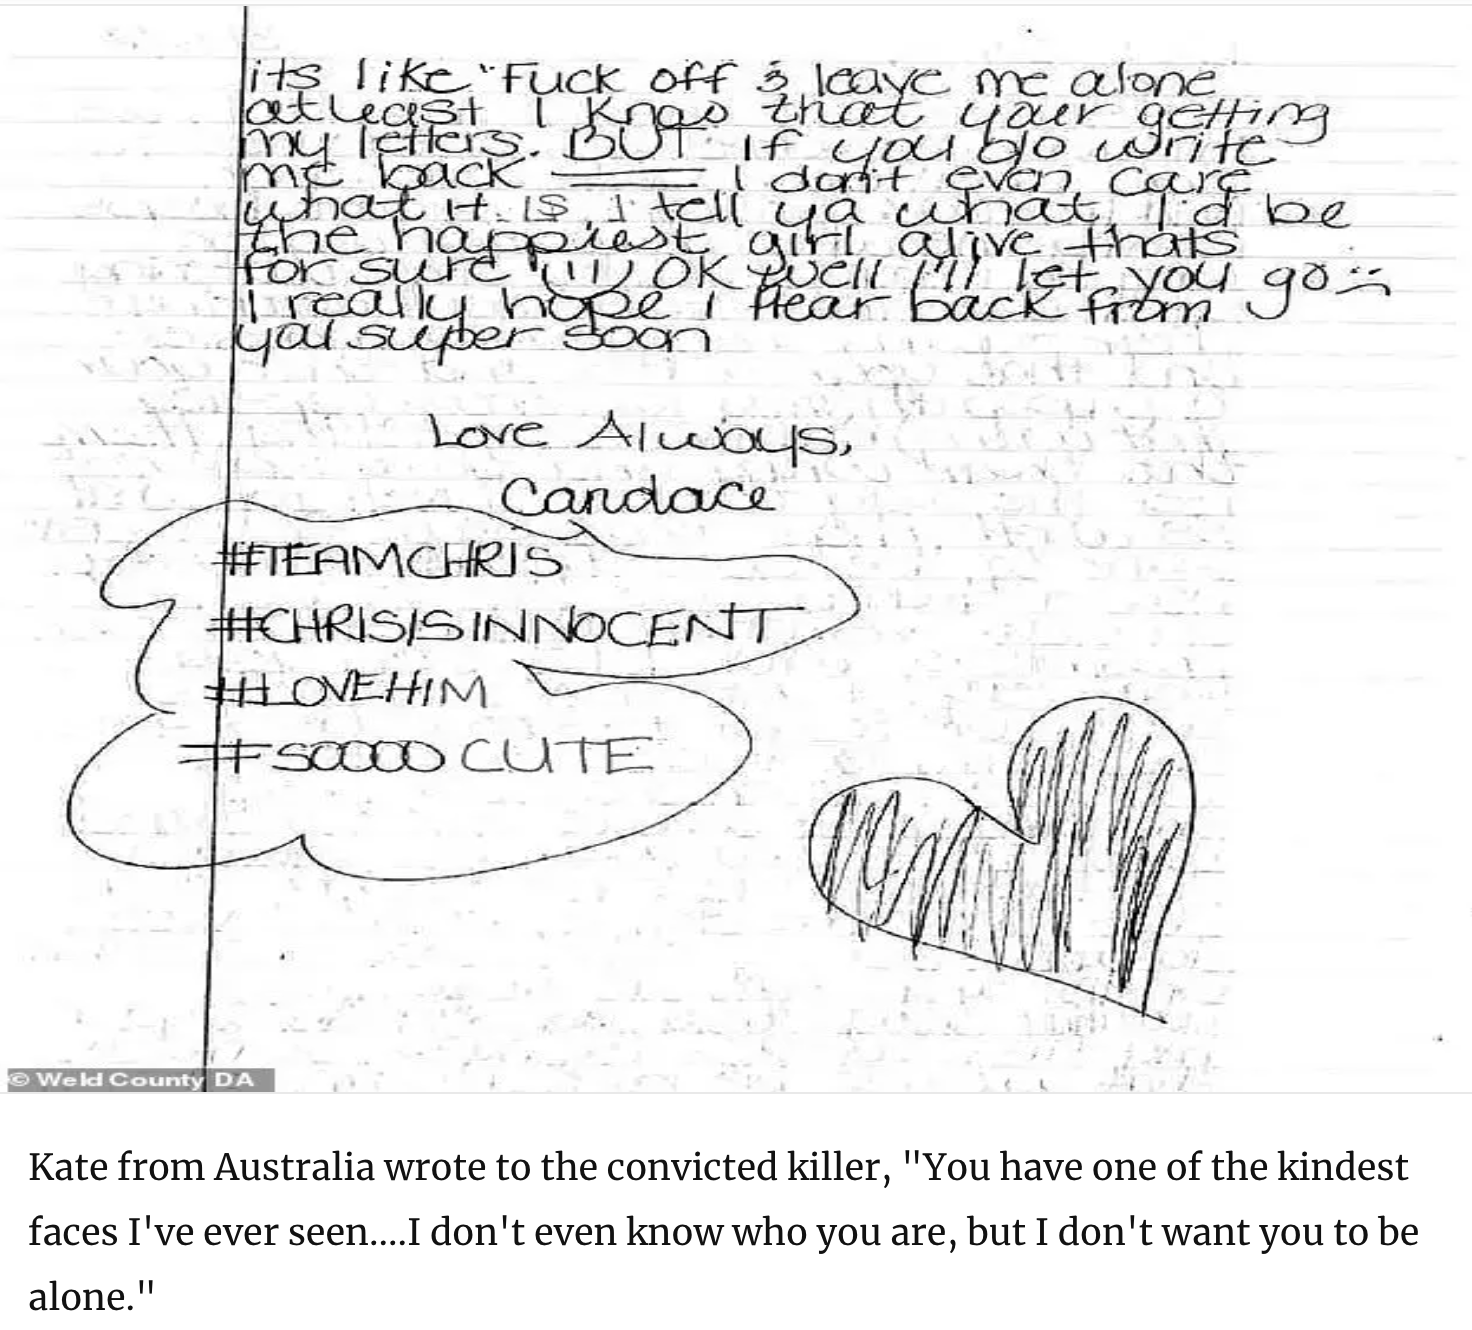 its like "Fuck off & leave me alone
atleast I know that your getting
my letters. BUT If you do write
me back I don't even care
what it is I tell ya what I'd be
the happiest girl alive thats
for sure !!!! OK well I'll let you go :(
I really hope I Hear back from
you super soon
Love Always,
Candace
#TEAMCHRIS
#CHRISISINNOCENT
#LOVEHIM
#SOOOOO CUTE
© Weld County DA
Kate from Australia wrote to the convicted killer, "You have one of the kindest
faces I've ever seen....I don't even know who you are, but I don't want you to be
alone."